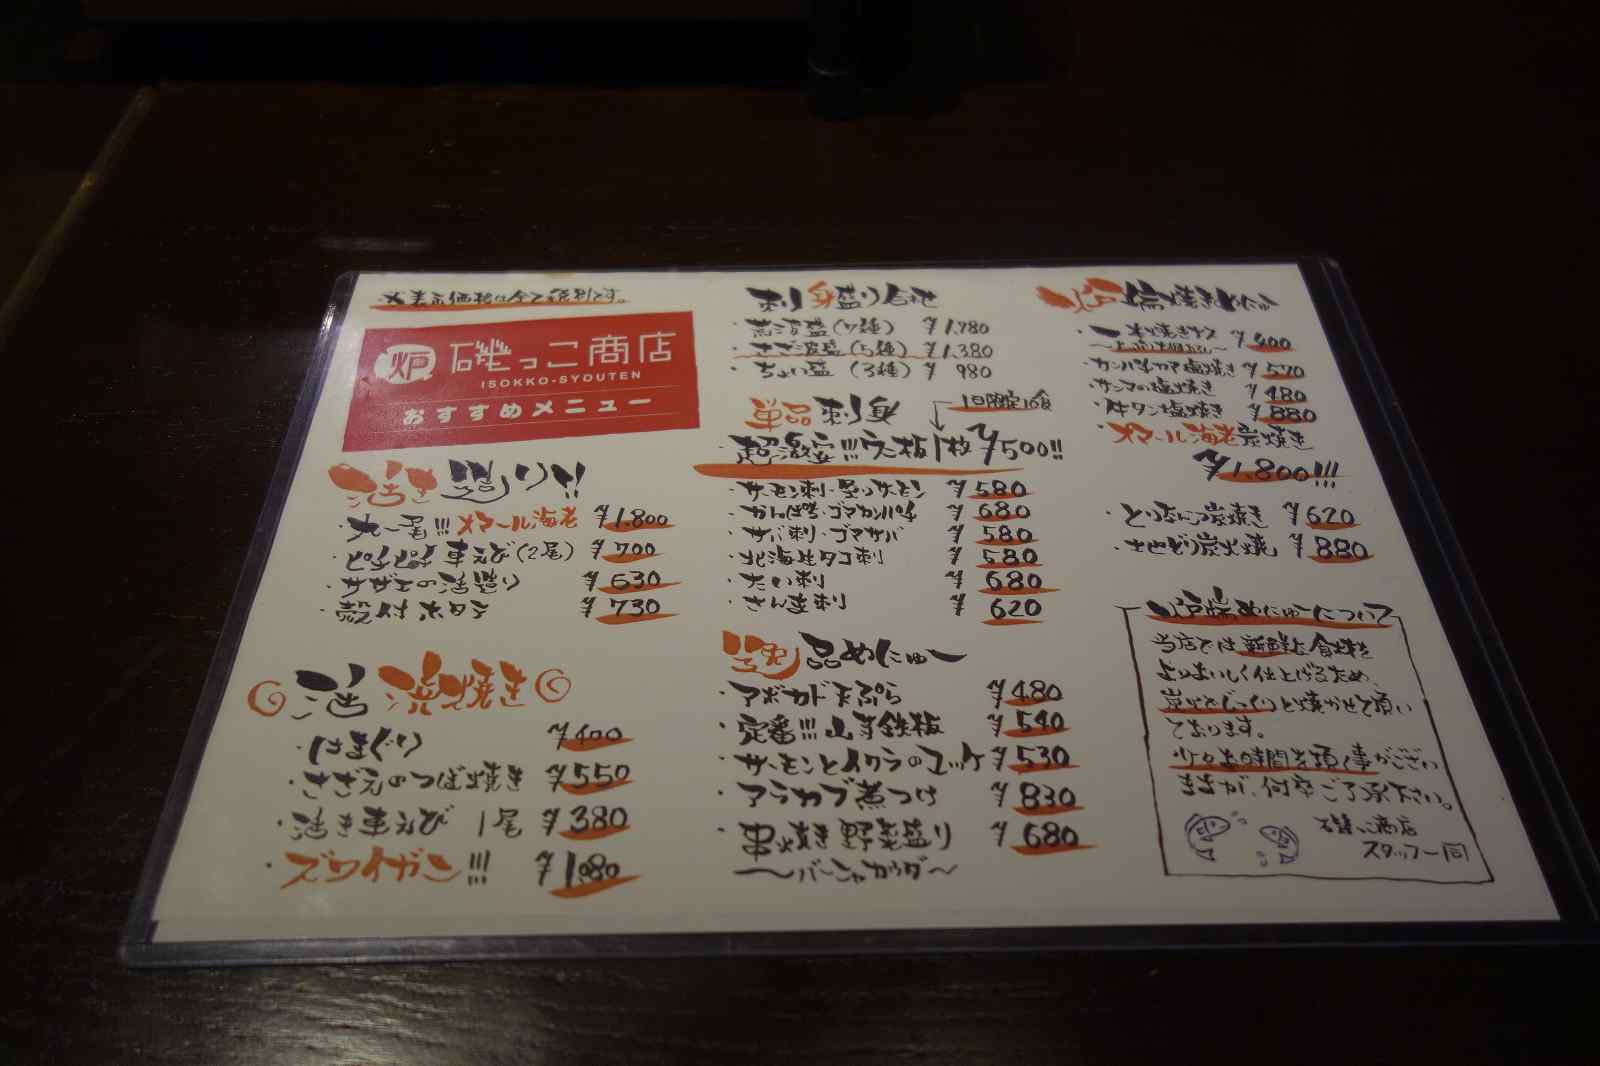 ※表示価格は全て税別です。
炉 磯っこ商店
ISOKKO-SYOUTEN
おすすめメニュー
活き造り!!
・大一尾!!!オマール海老 ¥1,800
・ピチピチ車えび(2尾) ¥700
・サザエの活造り ¥630
・殻付ホタテ ¥730
活 浜焼き
・はまぐり ¥400
・さざえのつぼ焼き ¥550
・活き車えび 1尾 ¥380
・ズワイガニ!!! ¥1,080
刺身盛り合せ
・荒波盛(7種) ¥1,780
・さざ波盛(5種) ¥1,380
・ちょい盛(3種) ¥980
単品刺身
1日限定10食
・超激安!!!ウニ板1枚¥500!!
・サーモン刺・炙りサーモン ¥580
・かんぱち・ゴマカンパチ ¥680
・サバ刺・ゴマサバ ¥580
・北海生タコ刺 ¥580
・たい刺 ¥680
・さんま刺 ¥620
逸品めにゅー
・アボカド天ぷら ¥480
・定番!!!山芋鉄板 ¥540
・サーモンとイクラのユッケ ¥530
・アラカブ煮つけ ¥830
・串焼き野菜盛り ¥680
〜バーニャカウダ〜
炉端焼きめにゅー
・一本焼きナス ¥400
・カンパチカマ塩焼き ¥570
・サンマの塩焼き ¥480
・牛タン塩焼き ¥880
・オマール海老炭焼き
¥1,800!!!
・とりなんこつ炭焼き ¥620
・地どり炭火焼 ¥880
炉端めにゅーについて
当店では新鮮な食材を
よりおいしく仕上げるため、
炭火でじっくりと焼かせて頂い
ております。
少々お時間を頂く事がござい
ますが、何卒ご了承下さい。
磯っこ商店
スタッフ一同